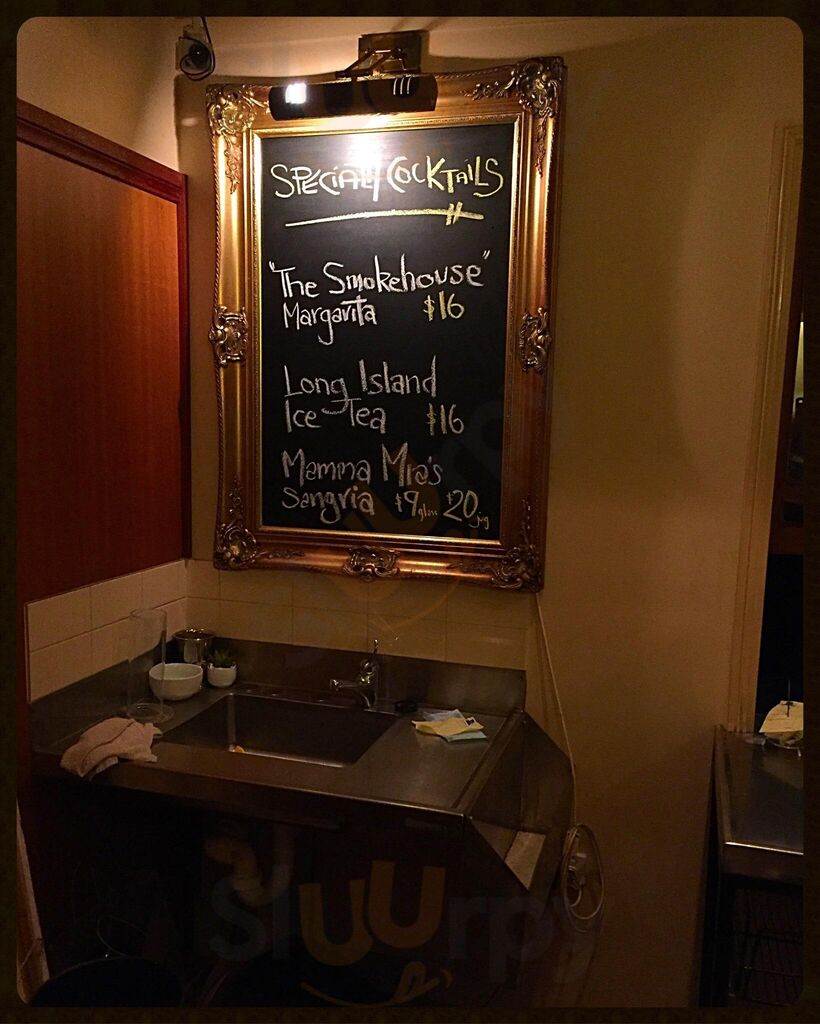 SPECIALTY COCKTAILS
"The Smokehouse"
Margarita $16
Long Island
Ice Tea $16
Mamma Mia's
Sangria $9 glass $20 jug
Sluurpy